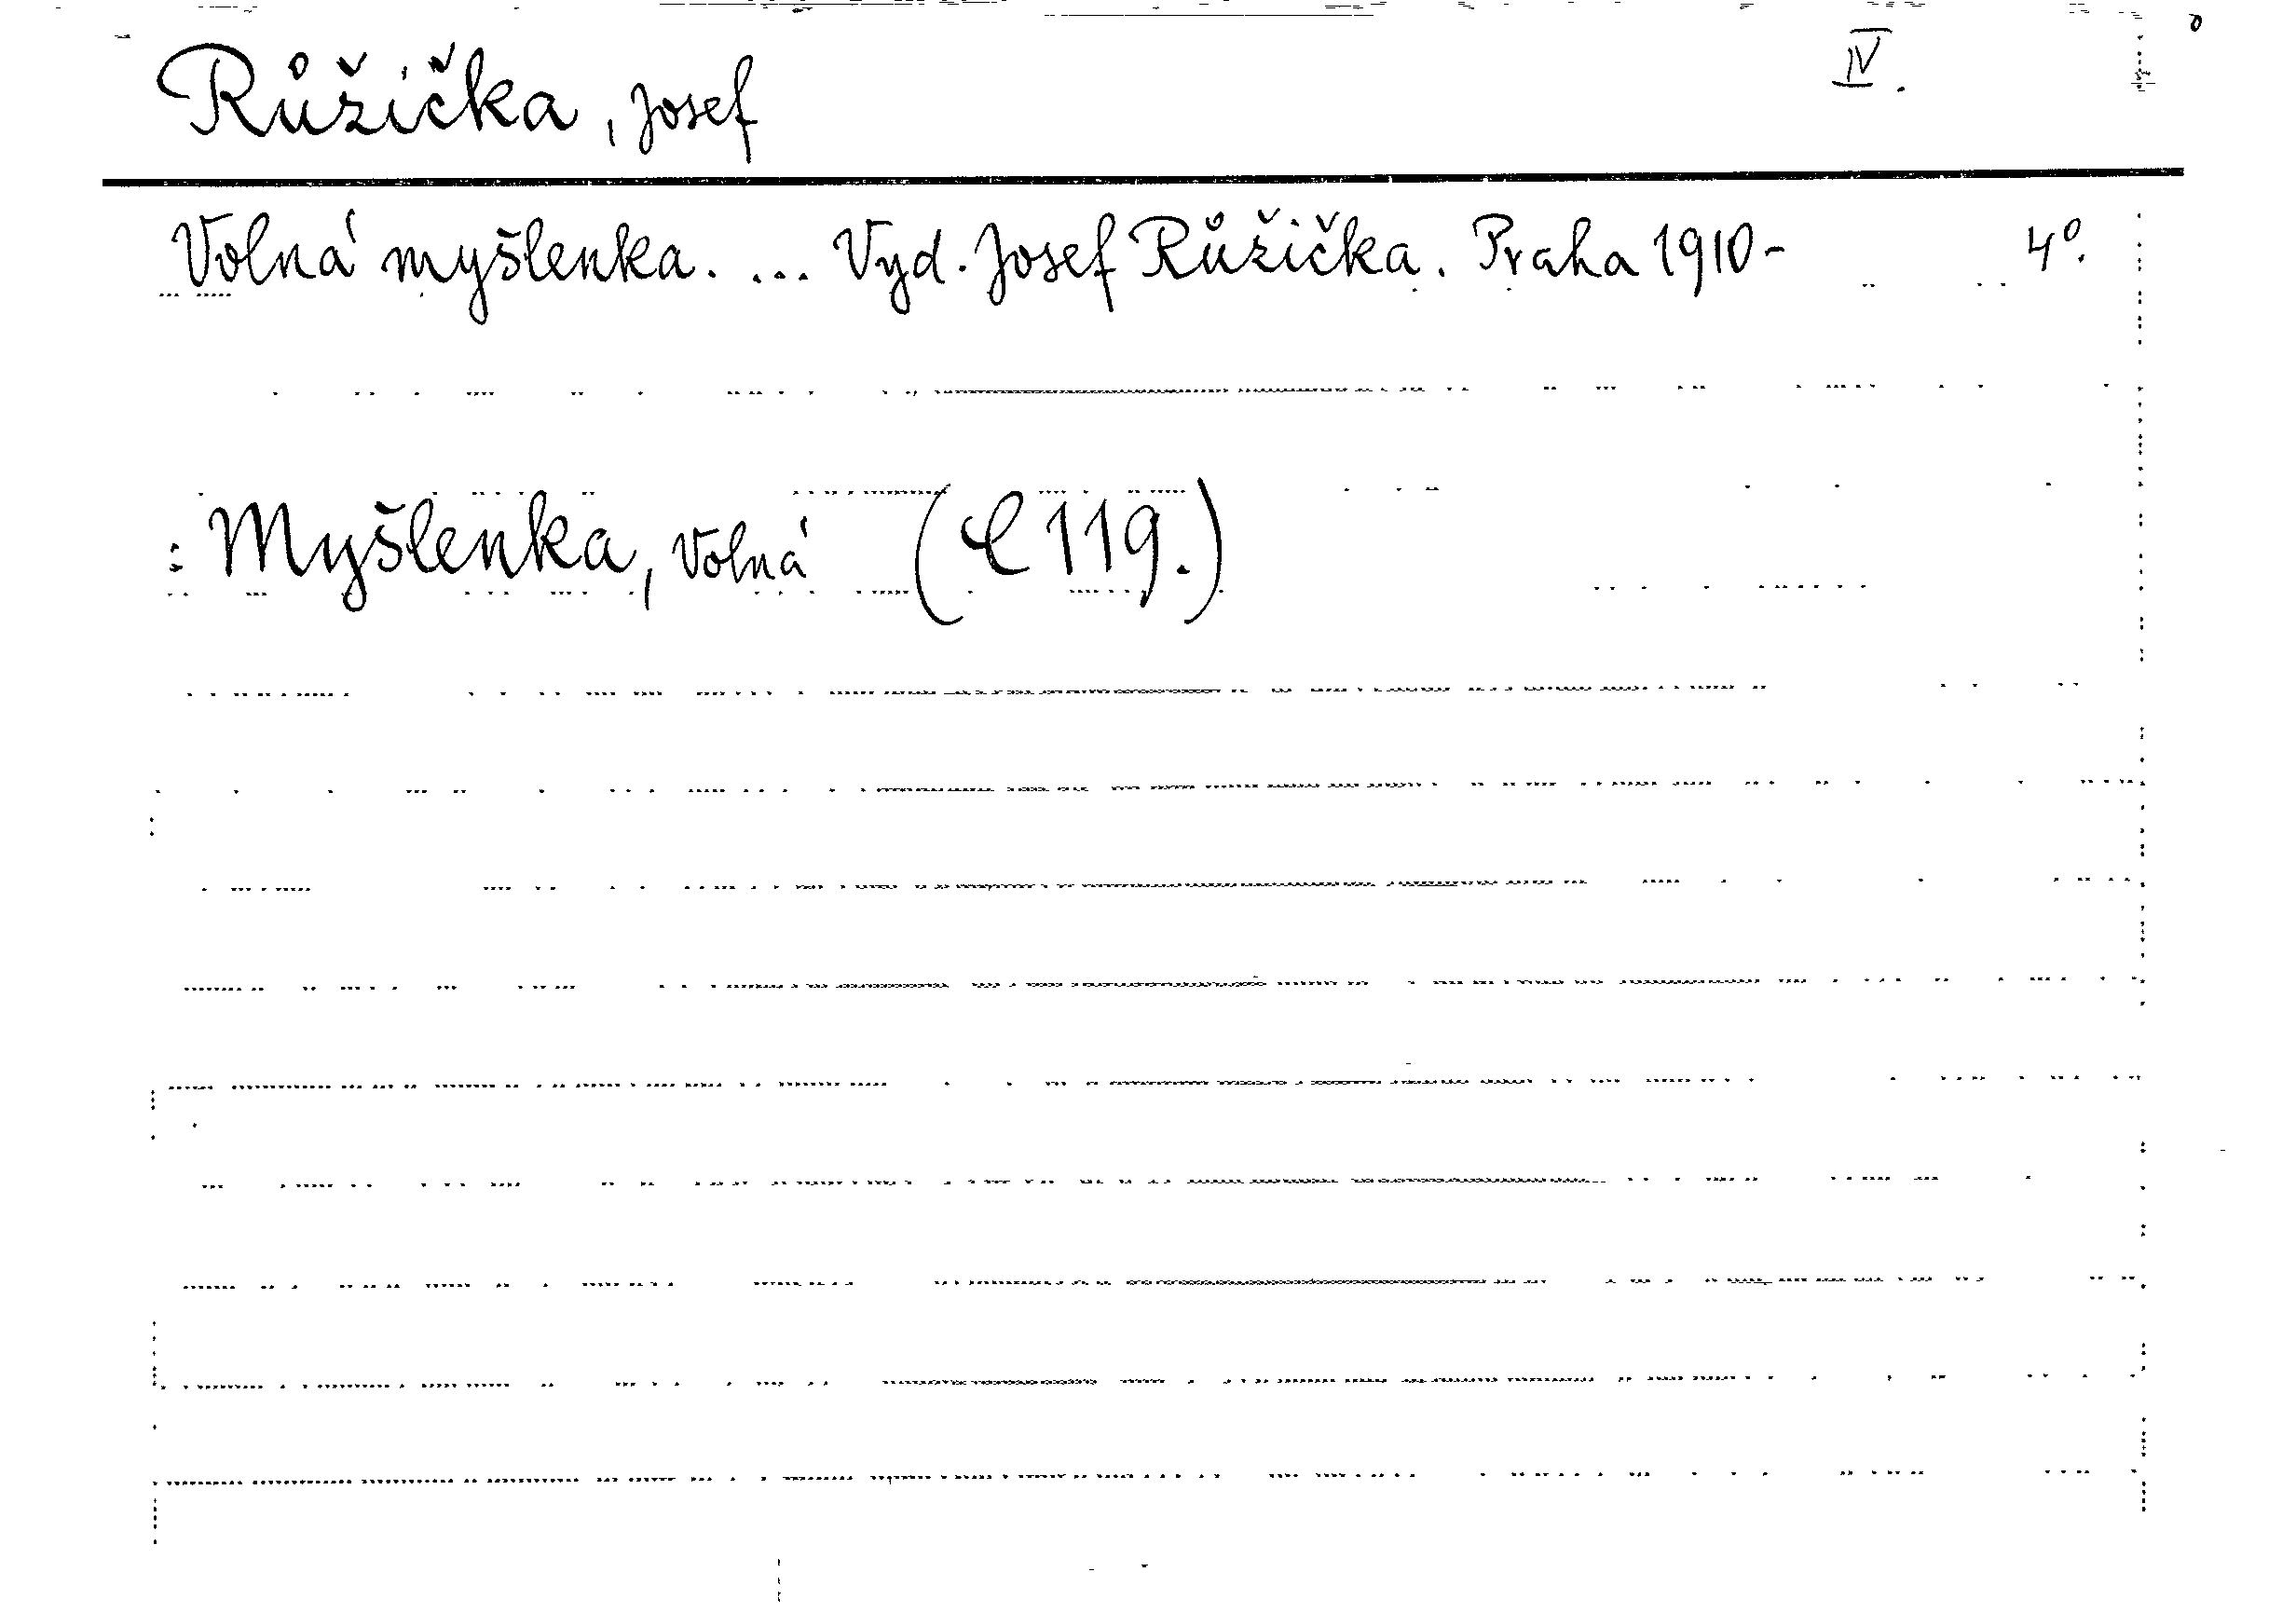 Růžička, Josef IV.
Volná myšlenka. ... Vyd. Josef Růžička. Praha 1910- 4°.
: Myšlenka, Volná (C 119.)